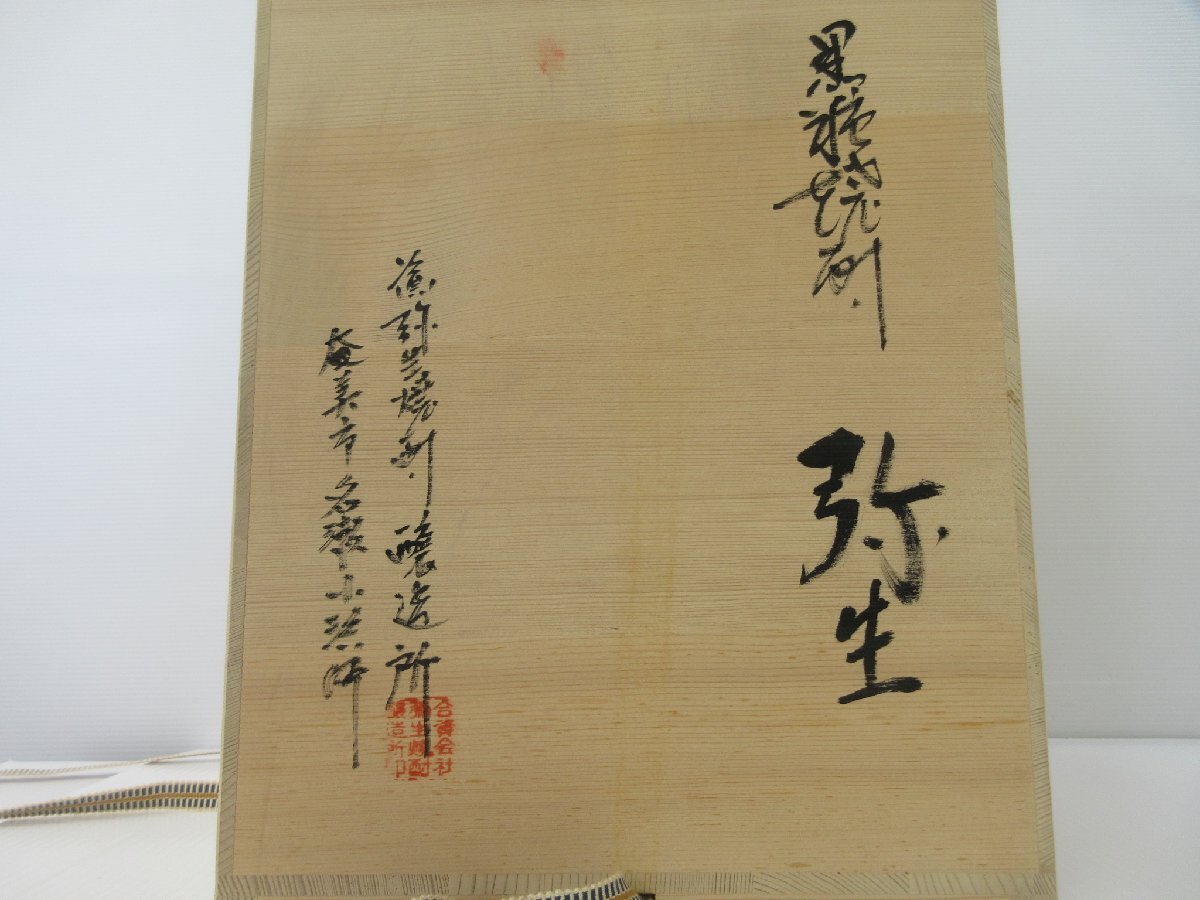 黒糖焼酎
弥生
資 弥生焼酎醸造所
奄美市名瀬小浜町
合資会社
弥生焼酎
醸造所印